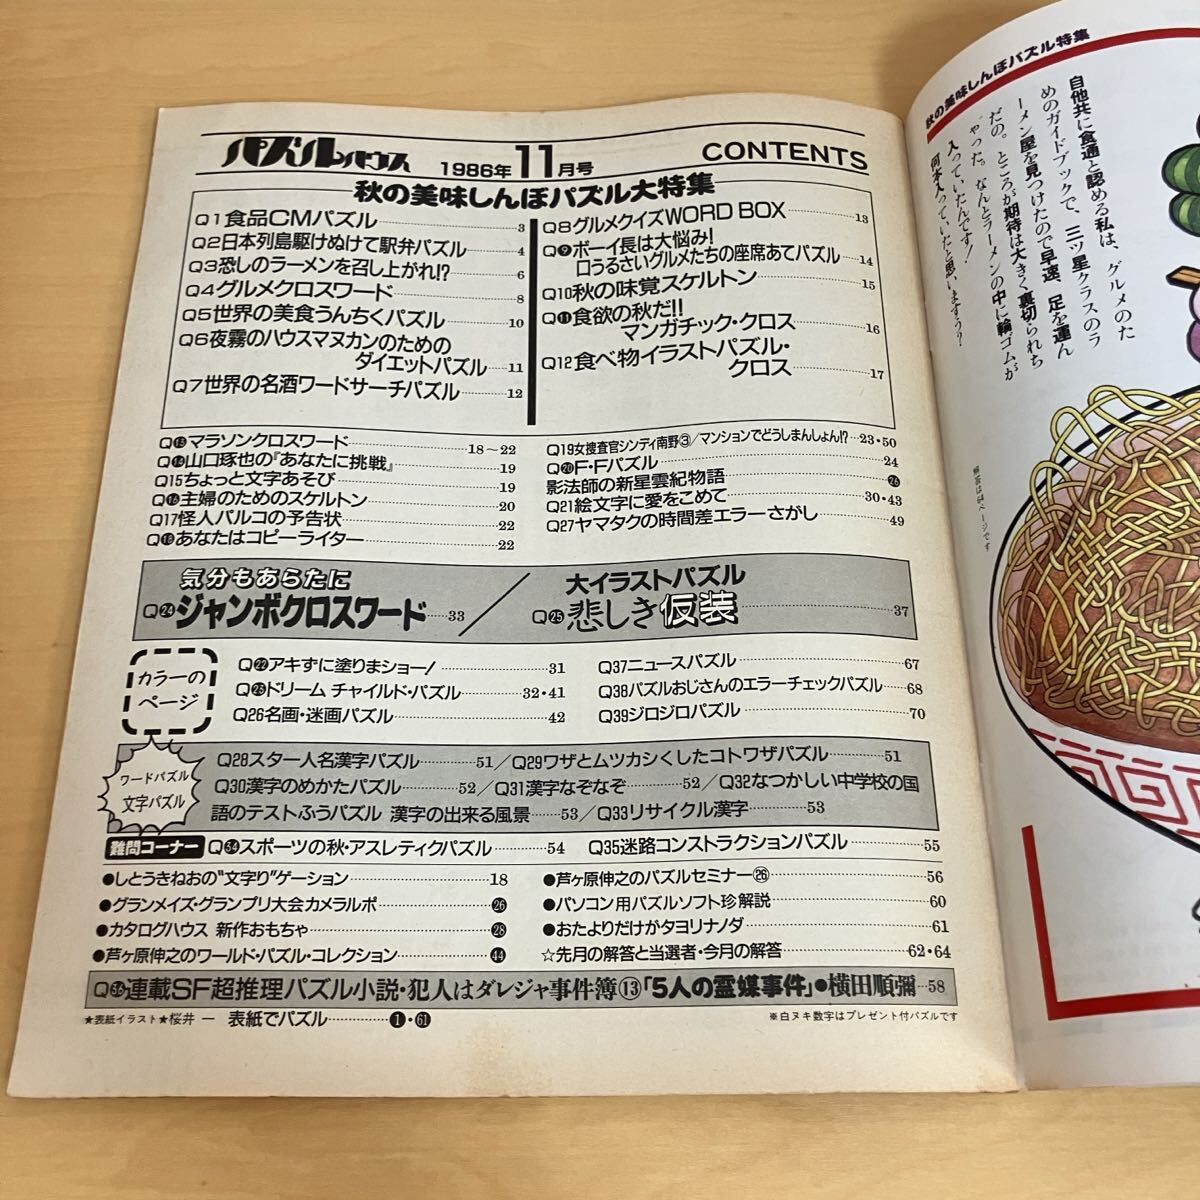 パズルハウス 1986年11月号 CONTENTS
秋の美味しんぼパズル大特集
Q1食品CMパズル 3
Q2日本列島駆けぬけて駅弁パズル 4
Q3恐しのラーメンを召し上がれ!? 6
Q4グルメクロスワード 8
Q5世界の美食うんちくパズル 10
Q6夜霧のハウスマヌカンのための
ダイエットパズル 11
Q7世界の名酒ワードサーチパズル 12
Q8グルメクイズWORD BOX 13
Q❾ボーイ長は大悩み!
口うるさいグルメたちの座席あてパズル 14
Q10秋の味覚スケルトン 15
Q⓫食欲の秋だ!!
マンガチック・クロス 16
Q12食べ物イラストパズル・
クロス 17
Q⓭マラソンクロスワード 18〜22
Q⓮山口琢也の『あなたに挑戦』 19
Q15ちょっと文字あそび 19
Q⓰主婦のためのスケルトン 20
Q17怪人パルコの予告状 22
Q⓲あなたはコピーライター 22
Q19女捜査官シンディ南野③/マンションでどうしまんしょん!? 23・50
Q⓴F・Fパズル 24
影法師の新星雲紀物語 26
Q21絵文字に愛をこめて 30・43
Q27ヤマタクの時間差エラーさがし 49
気分もあらたに
Q24ジャンボクロスワード 33
大イラストパズル
Q25悲しき仮装 37
カラーの
ページ
Q22アキずに塗りまショー! 31
Q23ドリーム チャイルド・パズル 32・41
Q26名画・迷画パズル 42
Q37ニュースパズル 67
Q38パズルおじさんのエラーチェックパズル 68
Q39ジロジロパズル 70
ワードパズル
文字パズル
Q28スター人名漢字パズル 51/Q29ワザとムツカシくしたコトワザパズル 51
Q30漢字のめかたパズル 52/Q31漢字なぞなぞ 52/Q32なつかしい中学校の国
語のテストふうパズル 漢字の出来る風景 53/Q33リサイクル漢字 53
難問コーナー Q34スポーツの秋・アスレティクパズル 54 Q35迷路コンストラクションパズル 55
●しとうきねおの"文字り"ゲーション 18
●グランメイズ・グランプリ大会カメラルポ 26
●カタログハウス 新作おもちゃ 28
●芦ヶ原伸之のワールド・パズル・コレクション 44
●芦ヶ原伸之のパズルセミナー㉖ 56
●パソコン用パズルソフト珍解説 60
●おたよりだけがタヨリナノダ 61
☆先月の解答と当選者・今月の解答 62・64
Q36連載SF超推理パズル小説・犯人はダレジャ事件簿⑬「5人の霊媒事件」●横田順彌 58
★表紙イラスト★桜井一 表紙でパズル 1・61
※白ヌキ数字はプレゼント付パズルです
秋の美味しんぼパズル特集
自他共に食通と認める私は、グルメのた
めのガイドブックで、三ツ星クラスのラ
ーメン屋を見つけたので早速、足を運ん
だの。ところが期待は大きく裏切られち
ゃった。なんとラーメンの中に輪ゴムが
入っていたんです!
何本入っていたと思いますぅ?
解答は64ページです